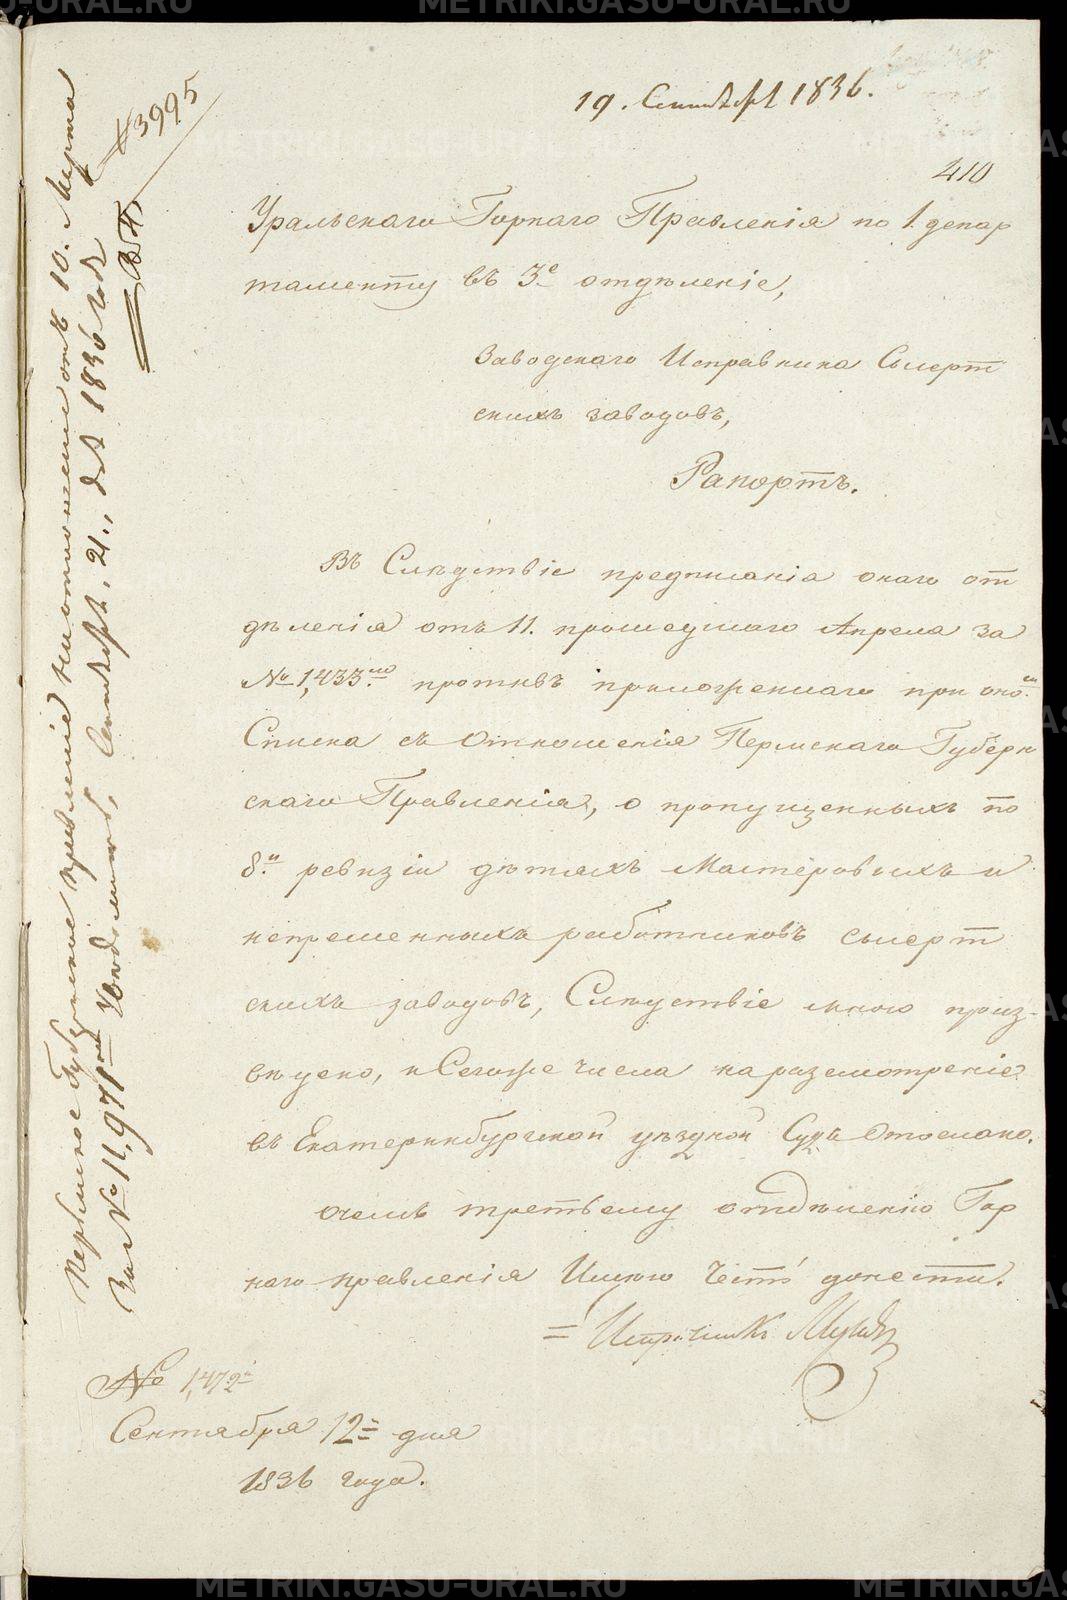 19. Сентября 1836.
410
Уральскаго Горнаго Правленія по 1. депар
таменту въ 3е отдѣленіе,
Заводскаго Исправника Сысерт
скихъ заводовъ,
Рапортъ.
Въ Слѣдствіе предписанія онаго от
дѣленія отъ 11. прошедшаго Апреля за
№ 1,433мъ противъ приложеннаго при ономъ
Списка съ Отношенія Пермскаго Губерн
скаго Правленія, о пропущенныхъ по
8й ревизіи дѣтяхъ Мастеровыхъ и
непременныхъ работниковъ Сысерт
скихъ заводовъ, Слѣдствіе мною произ-
вѣдено, и Сегоже числа на разсмотреніе
въ Екатеринбургской уѣздной Судъ Отослано.
О чемъ третьему отдѣленію Гор
наго правленія Имѣю Честь донести.
Исправникъ
№ 1,472й
Сентября 12го дня
1836 года.
№ 3995
Пермское Губернское правленіе на отношеніе отъ 10. Марта
За № 11,971мъ Уведомить, Сентября, 21., дня 1836 года
METRIKI.GASU-URAL.RU